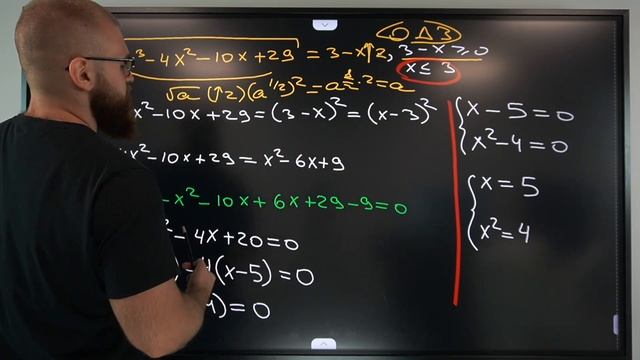 ³-4x²-10x+29 = 3-x ↑2, 3-x≥0
ОДЗ
x ≤ 3
√a (↑2) (a^(1/2))² = a^(½·2) = a
x²-10x+29 = (3-x)² = (x-3)²
x²-10x+29 = x²-6x+9
-x²-10x+6x+29-9=0
²-4x+20=0
(x-5)=0
)=0
x-5=0
x²-4=0
x=5
x²=4